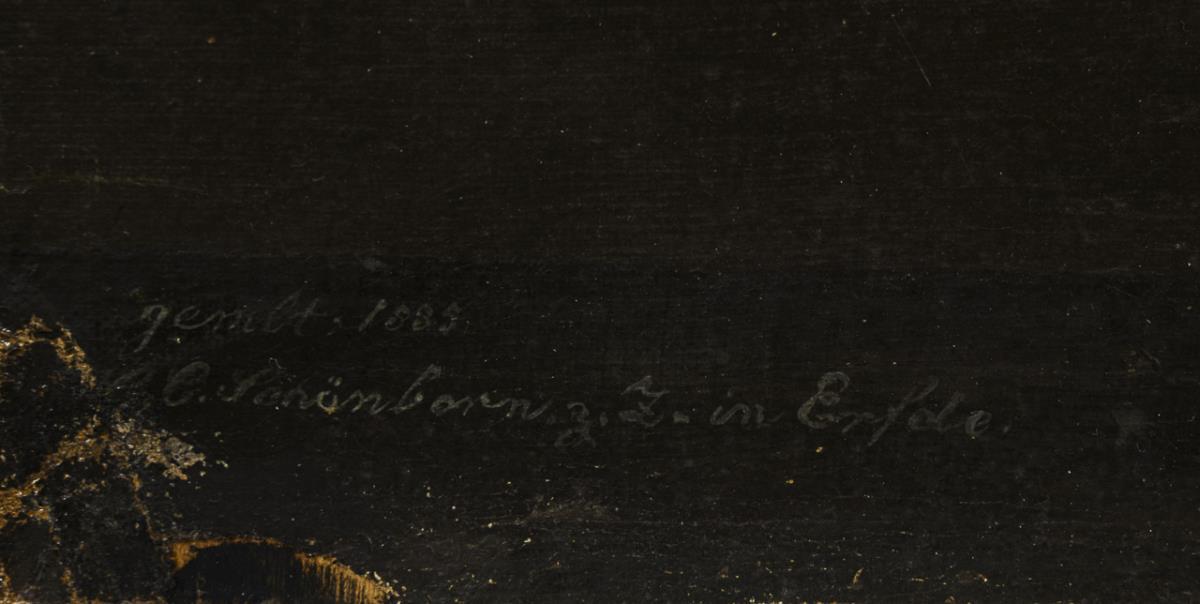 gemlt. 1885
C. Schönborn. z. Z. in Erfde.